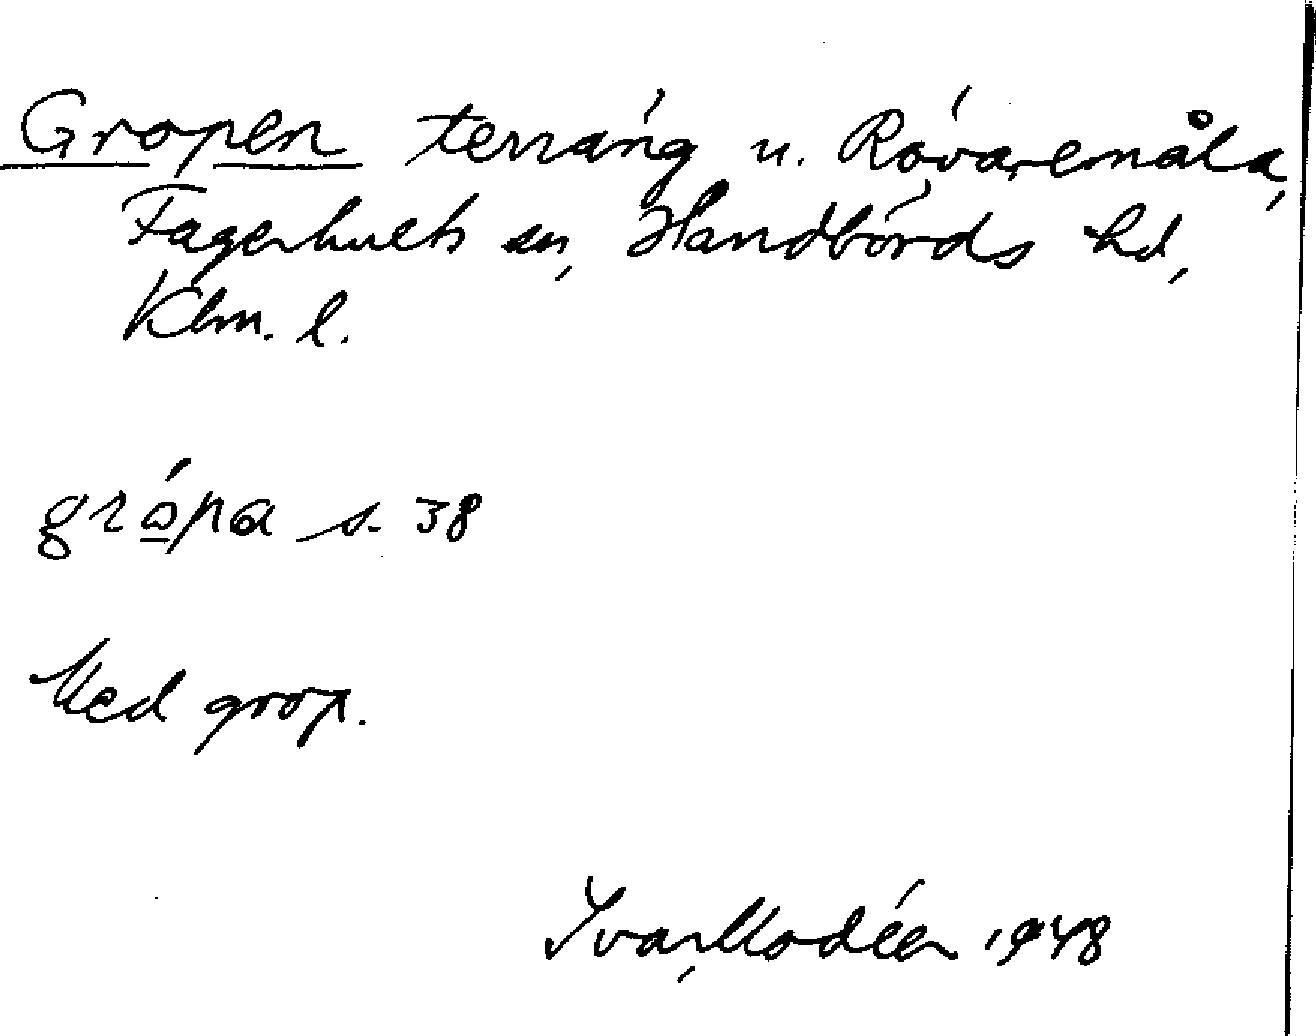 Gropen terräng u. Rövaremåla,
Fagerhults sn, Handbörds hd,
Klm. l.
grópa s. 38
Med grop.
Ivar Modéer 1948